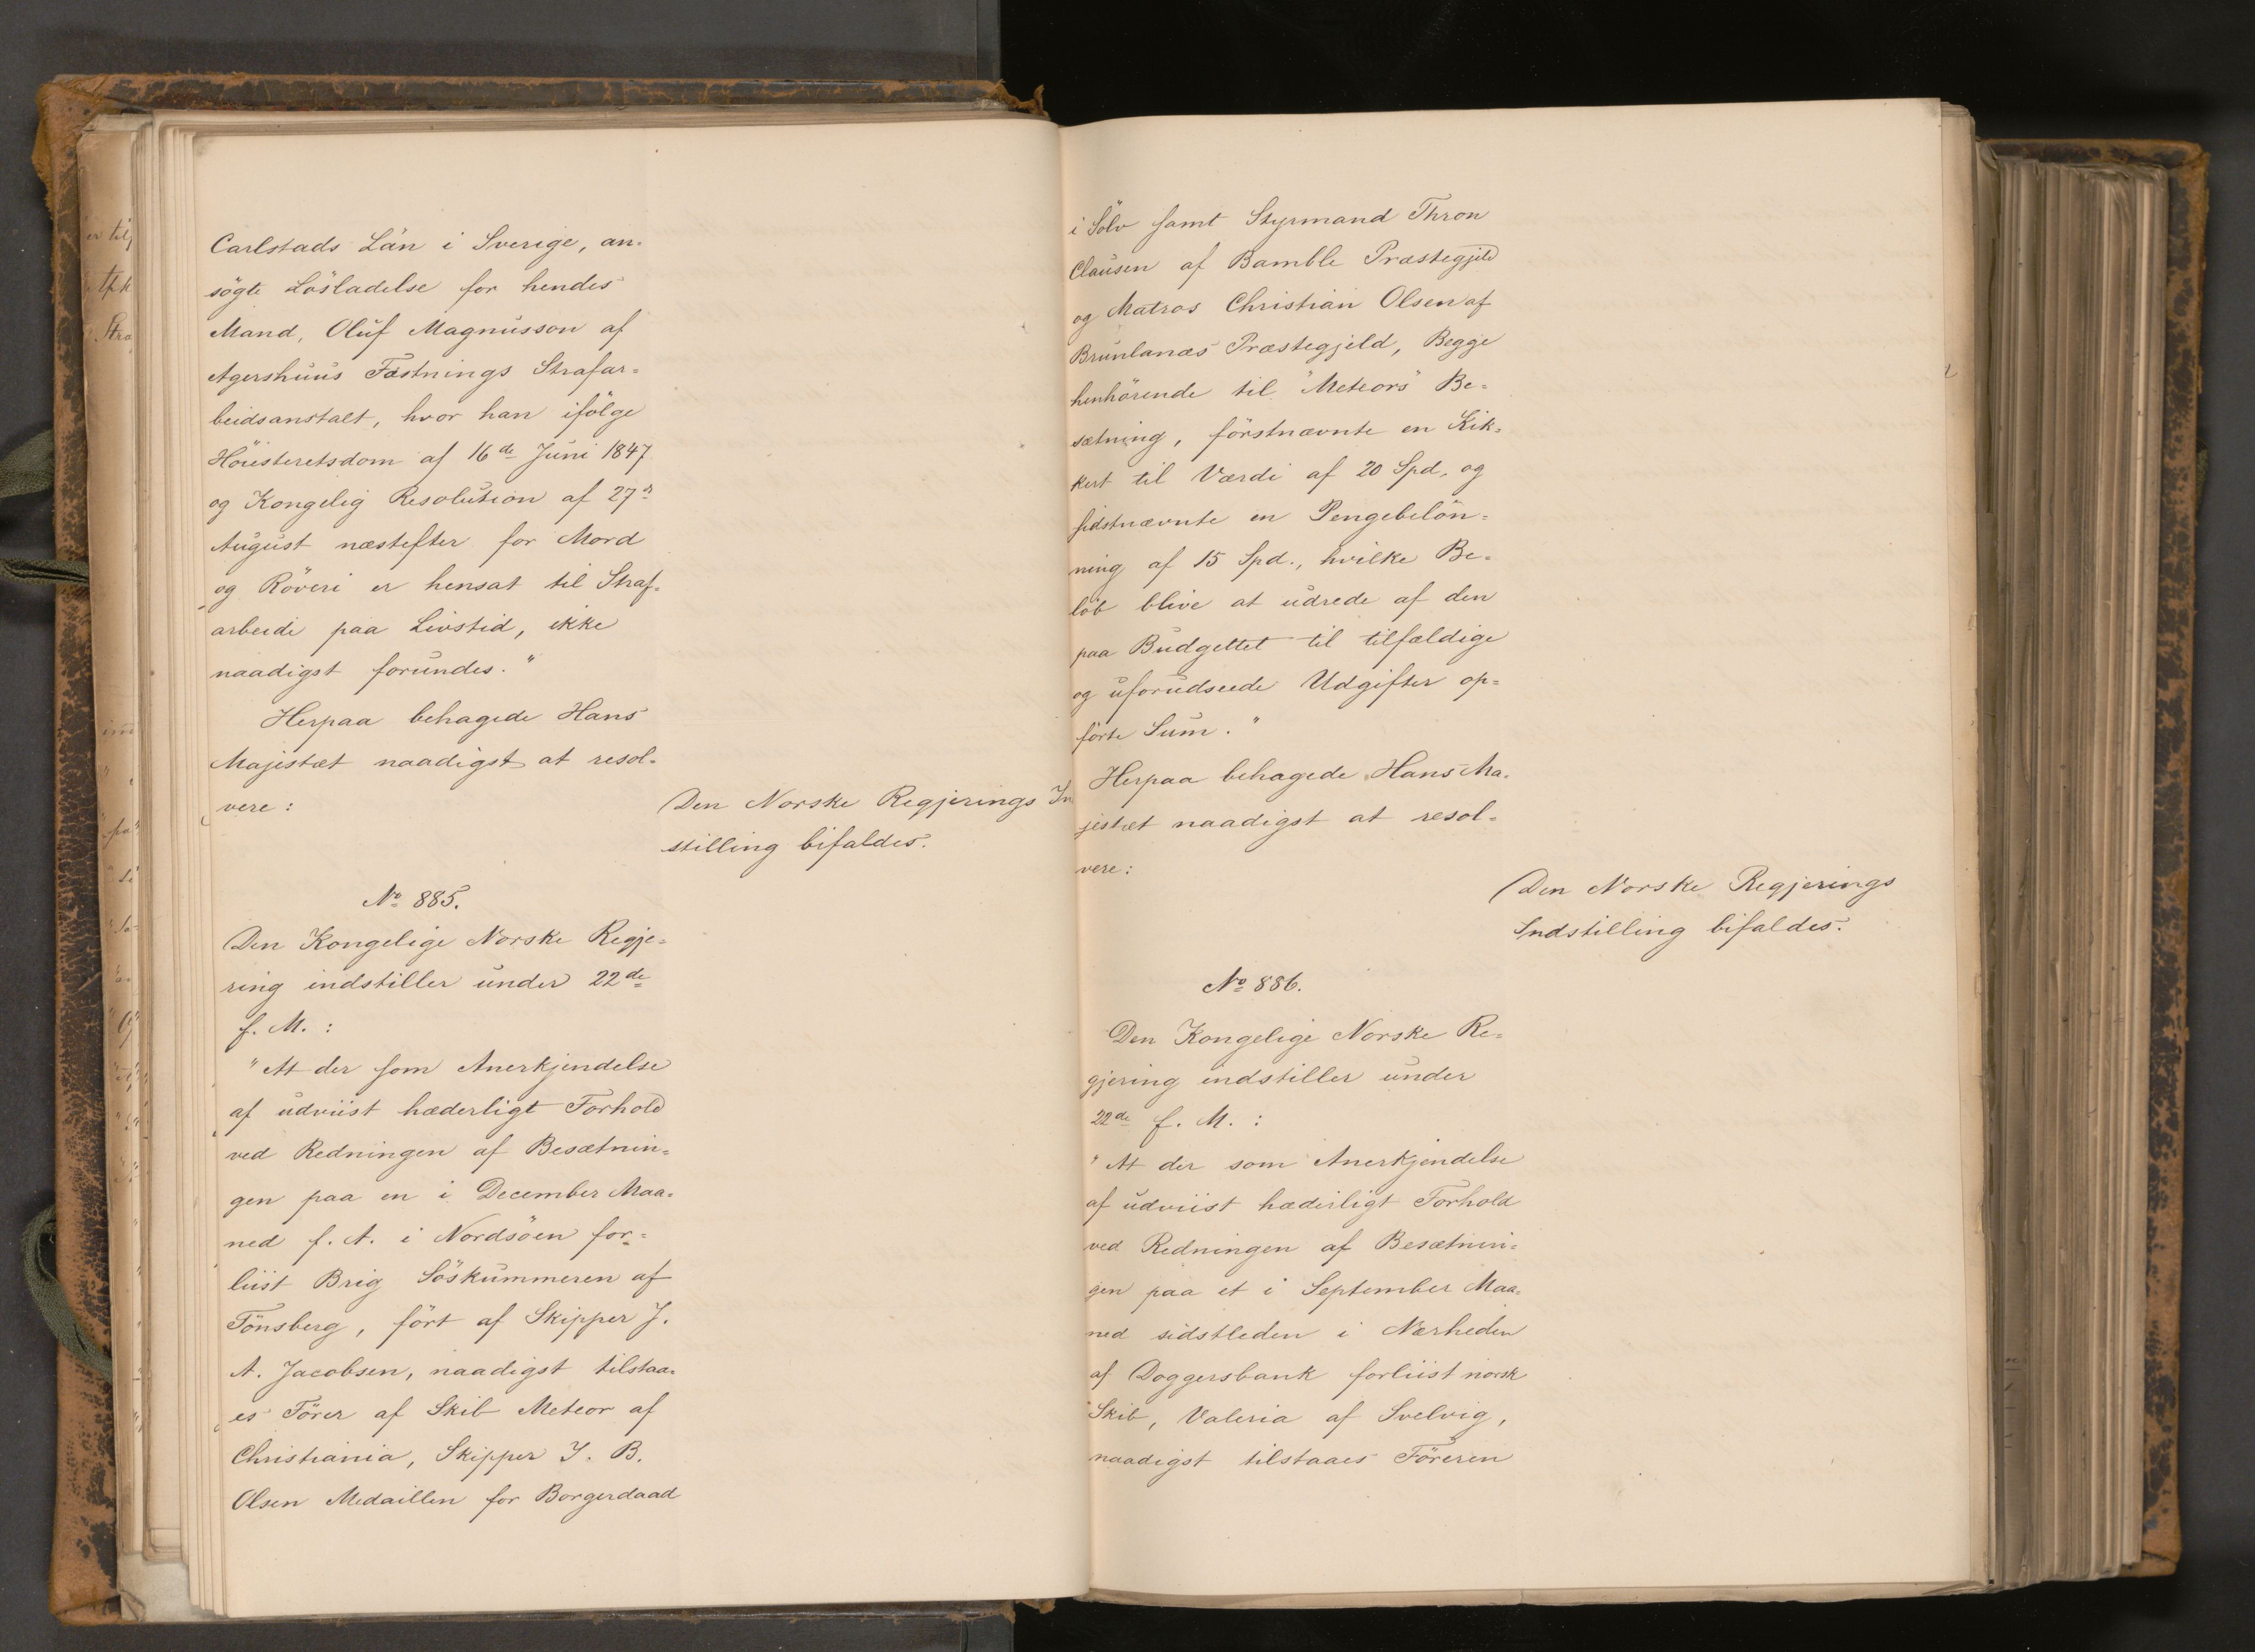 Carlstads Län i Sverige, an-
søgte Løsladelse for hendes
Mand, Oluf Magnusson af
Agershuus Fæstnings Strafar=
beidsanstalt, hvor han ifølge
Høiesteretsdom af 16de Juni 1847
og Kongelig Resolution af 27de
August næstefter for Mord
og Røveri er hensat til Straf=
arbeide paa Livstid, ikke
naadigst forundes."
Herpaa behagede Hans
Majestæt naadigst at resol-
vere:
Den Norske Regjerings In
stilling bifaldes.
No 885.
Den Kongelige Norske Regje=
ring indstiller under 22de
f. M.:
"At der som Anerkjendelse
af udviist hæderligt Forhold
ved Redningen af Besætnin=
gen paa en i December Maa=
ned f. A. i Nordsøen for=
liist Brig Söskummeren af
Tönsberg, ført af Skipper J.
A. Jacobsen, naadigst tilstaa=
es Fører af Skib Meteor af
Christiania, Skipper J. B.
Olsen Medaillen for Borgerdaad
i Sölv samt Styrmand Thron
Clausen af Bamble Præstegjeld
og Matros Christian Olsen af
Brunlanæs Præstegjeld, Begge
henhörende til "Meteors" Be=
sætning, förstnævnte en Kik=
kert til Værdi af 20 Spd. og
sidstnævnte en Pengebelön=
ning af 15 Spd., hvilke Be=
löb blive at udrede af den
paa Budgettet til tilfældige
og uforudseede Udgifter op=
förte Sum."
Herpaa behagede Hans Ma-
jestæt naadigst at resol=
vere:
Den Norske Regjerings
Indstilling bifaldes.
No 886.
Den Kongelige Norske Re=
gjering indstiller under
22de f. M.:
"At der som Anerkjendelse
af udviist hæderligt Forhold
ved Redningen af Besætnin=
gen paa et i September Maa=
ned sidstleden i Nærheden
af Doggersbank forliist norsk
Skib, Valeria af Svelvig,
naadigst tilstaaes Föreren